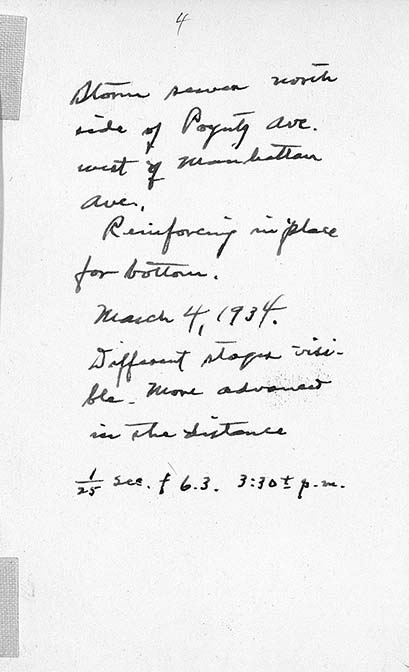 4
Storm sewer north
side of Poyntz Ave.
west of Manhattan
Ave.
Reinforcing in place
for bottom.
March 4, 1934.
Different stages visi-
ble. More advanced
in the distance
1/25 sec. f 6.3. 3:30± p.m.